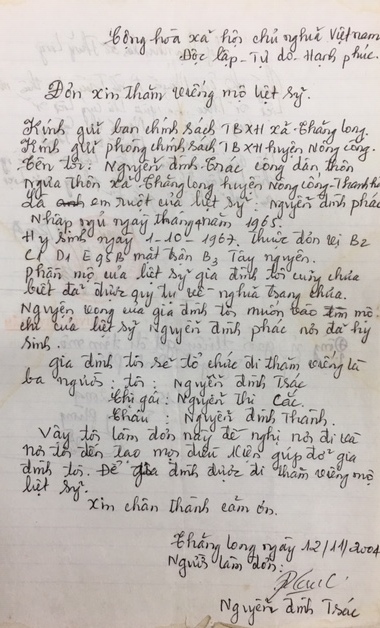 Cộng hòa xã hội chủ nghĩa Việt nam
Độc lập - Tự do - Hạnh phúc.
Đơn xin thăm viếng mộ liệt sỹ.
Kính gửi ban chính sách TBXH xã Thăng long.
Kính gửi phòng chính sách TBXH huyện Nông cống.
Tên tôi: Nguyễn đình Trác công dân thôn
Ngừa thôn xã Thăng long huyện Nông cống - Thanh hóa
Là anh em ruột của liệt sỹ: Nguyễn đình phác
Nhập ngũ ngày tháng 4 năm 1965.
Hy sinh ngày 1-10-1967. thuộc đơn vị B2
C1 D1 E95B mặt trận B3 Tây nguyên.
phần mộ của liệt sỹ gia đình tôi cũng chưa
biết đã được quy tụ về nghĩa trang chưa.
Nguyện vọng của gia đình tôi muốn vào tìm mộ
chí của liệt sỹ Nguyễn đình phác nơi đã hy
sinh.
gia đình tôi sẽ tổ chức đi thăm viếng là
ba người: tôi: Nguyễn đình Trác
Chị gái: Nguyễn thị Các.
Cháu: Nguyễn đình Thành.
Vậy tôi làm đơn này đề nghị nơi đi và
nơi tôi đến tạo mọi điều kiện giúp đỡ gia
đình tôi. Để gia đình được đi thăm viếng mộ
liệt sỹ.
xin chân thành cảm ơn.
Thăng long ngày 12/11/2004
Người làm đơn:
Nguyễn đình Trác